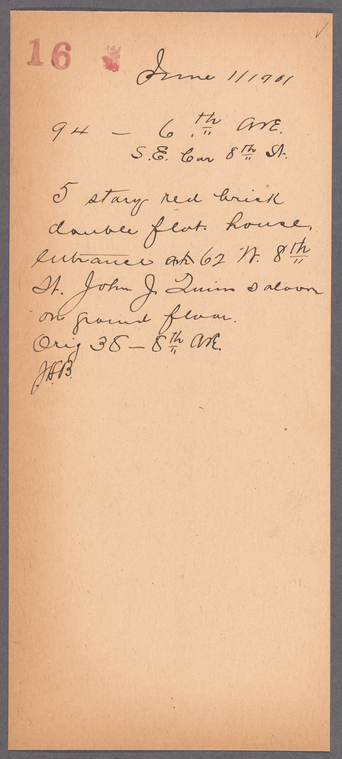 16
June 1/1901
94 — 6th AVE.
S.E. Cor 8th St.
5 story red brick
double flat house,
entrance at 62 W. 8th
St. John J. Quinn saloon
on ground floor.
Orig 38 — 8th AVE.
J.H.B.